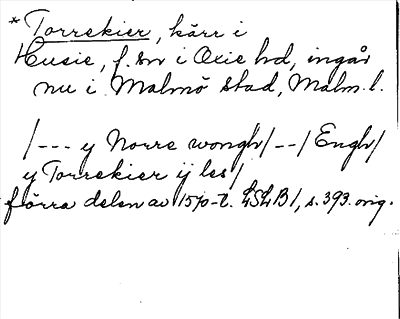 * Torrekier, kärr i
Husie, f. sn i Oxie hd, ingår
nu i Malmö stad, Malm. l.
/--- y Norre wongh/--/Engh/
y Torrekier ij les/
förra delen av 1570-t. LSLB1, s. 393. orig.